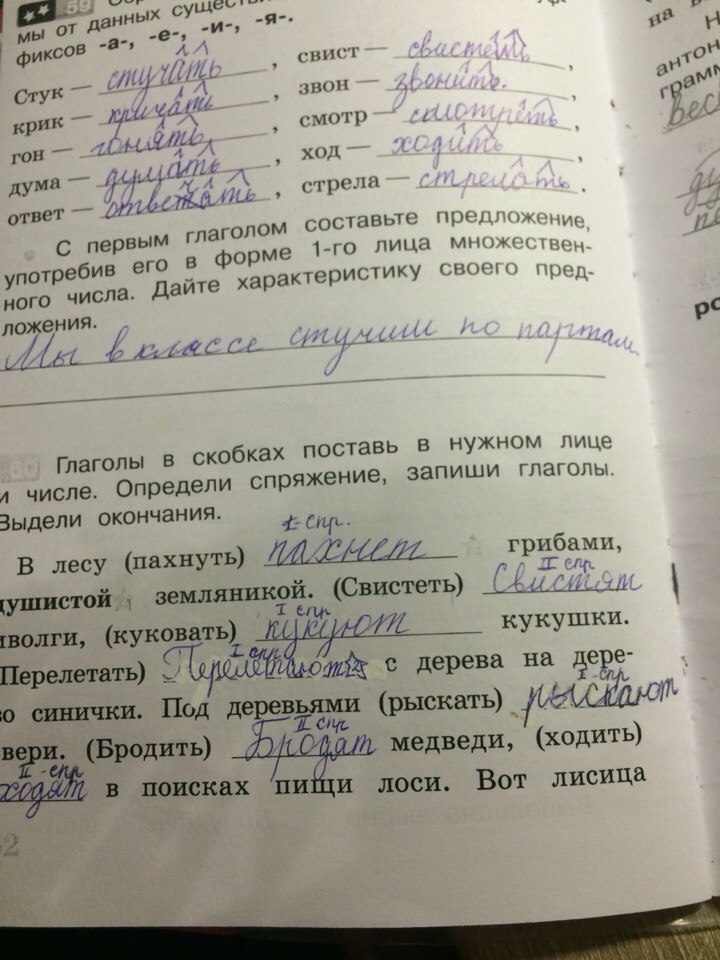 59
мы от данных существ
фиксов -а-, -е-, -и-, -я-.
Стук — стучать, свист — свистеть,
крик — кричать, звон — звонить.,
гон — гонять, смотр — смотреть,
дума — думать, ход — ходить,
ответ — отвечать, стрела — стрелять.
С первым глаголом составьте предложение,
употребив его в форме 1-го лица множествен-
ного числа. Дайте характеристику своего пред-
ложения.
Мы в классе стучим по партам.
60 Глаголы в скобках поставь в нужном лице
и числе. Определи спряжение, запиши глаголы.
Выдели окончания.
I-спр.
В лесу (пахнуть) пахнет грибами,
II спр
душистой земляникой. (Свистеть) Свистят
I спр
иволги, (куковать) кукуют кукушки.
I спр
Перелетать) Перелетают с дерева на дере-
I-спр
во синички. Под деревьями (рыскать) рыскают
II спр
вери. (Бродить) Бродят медведи, (ходить)
II-спр
ходят в поисках пищи лоси. Вот лисица
на в
антон
грамм
вес
ро